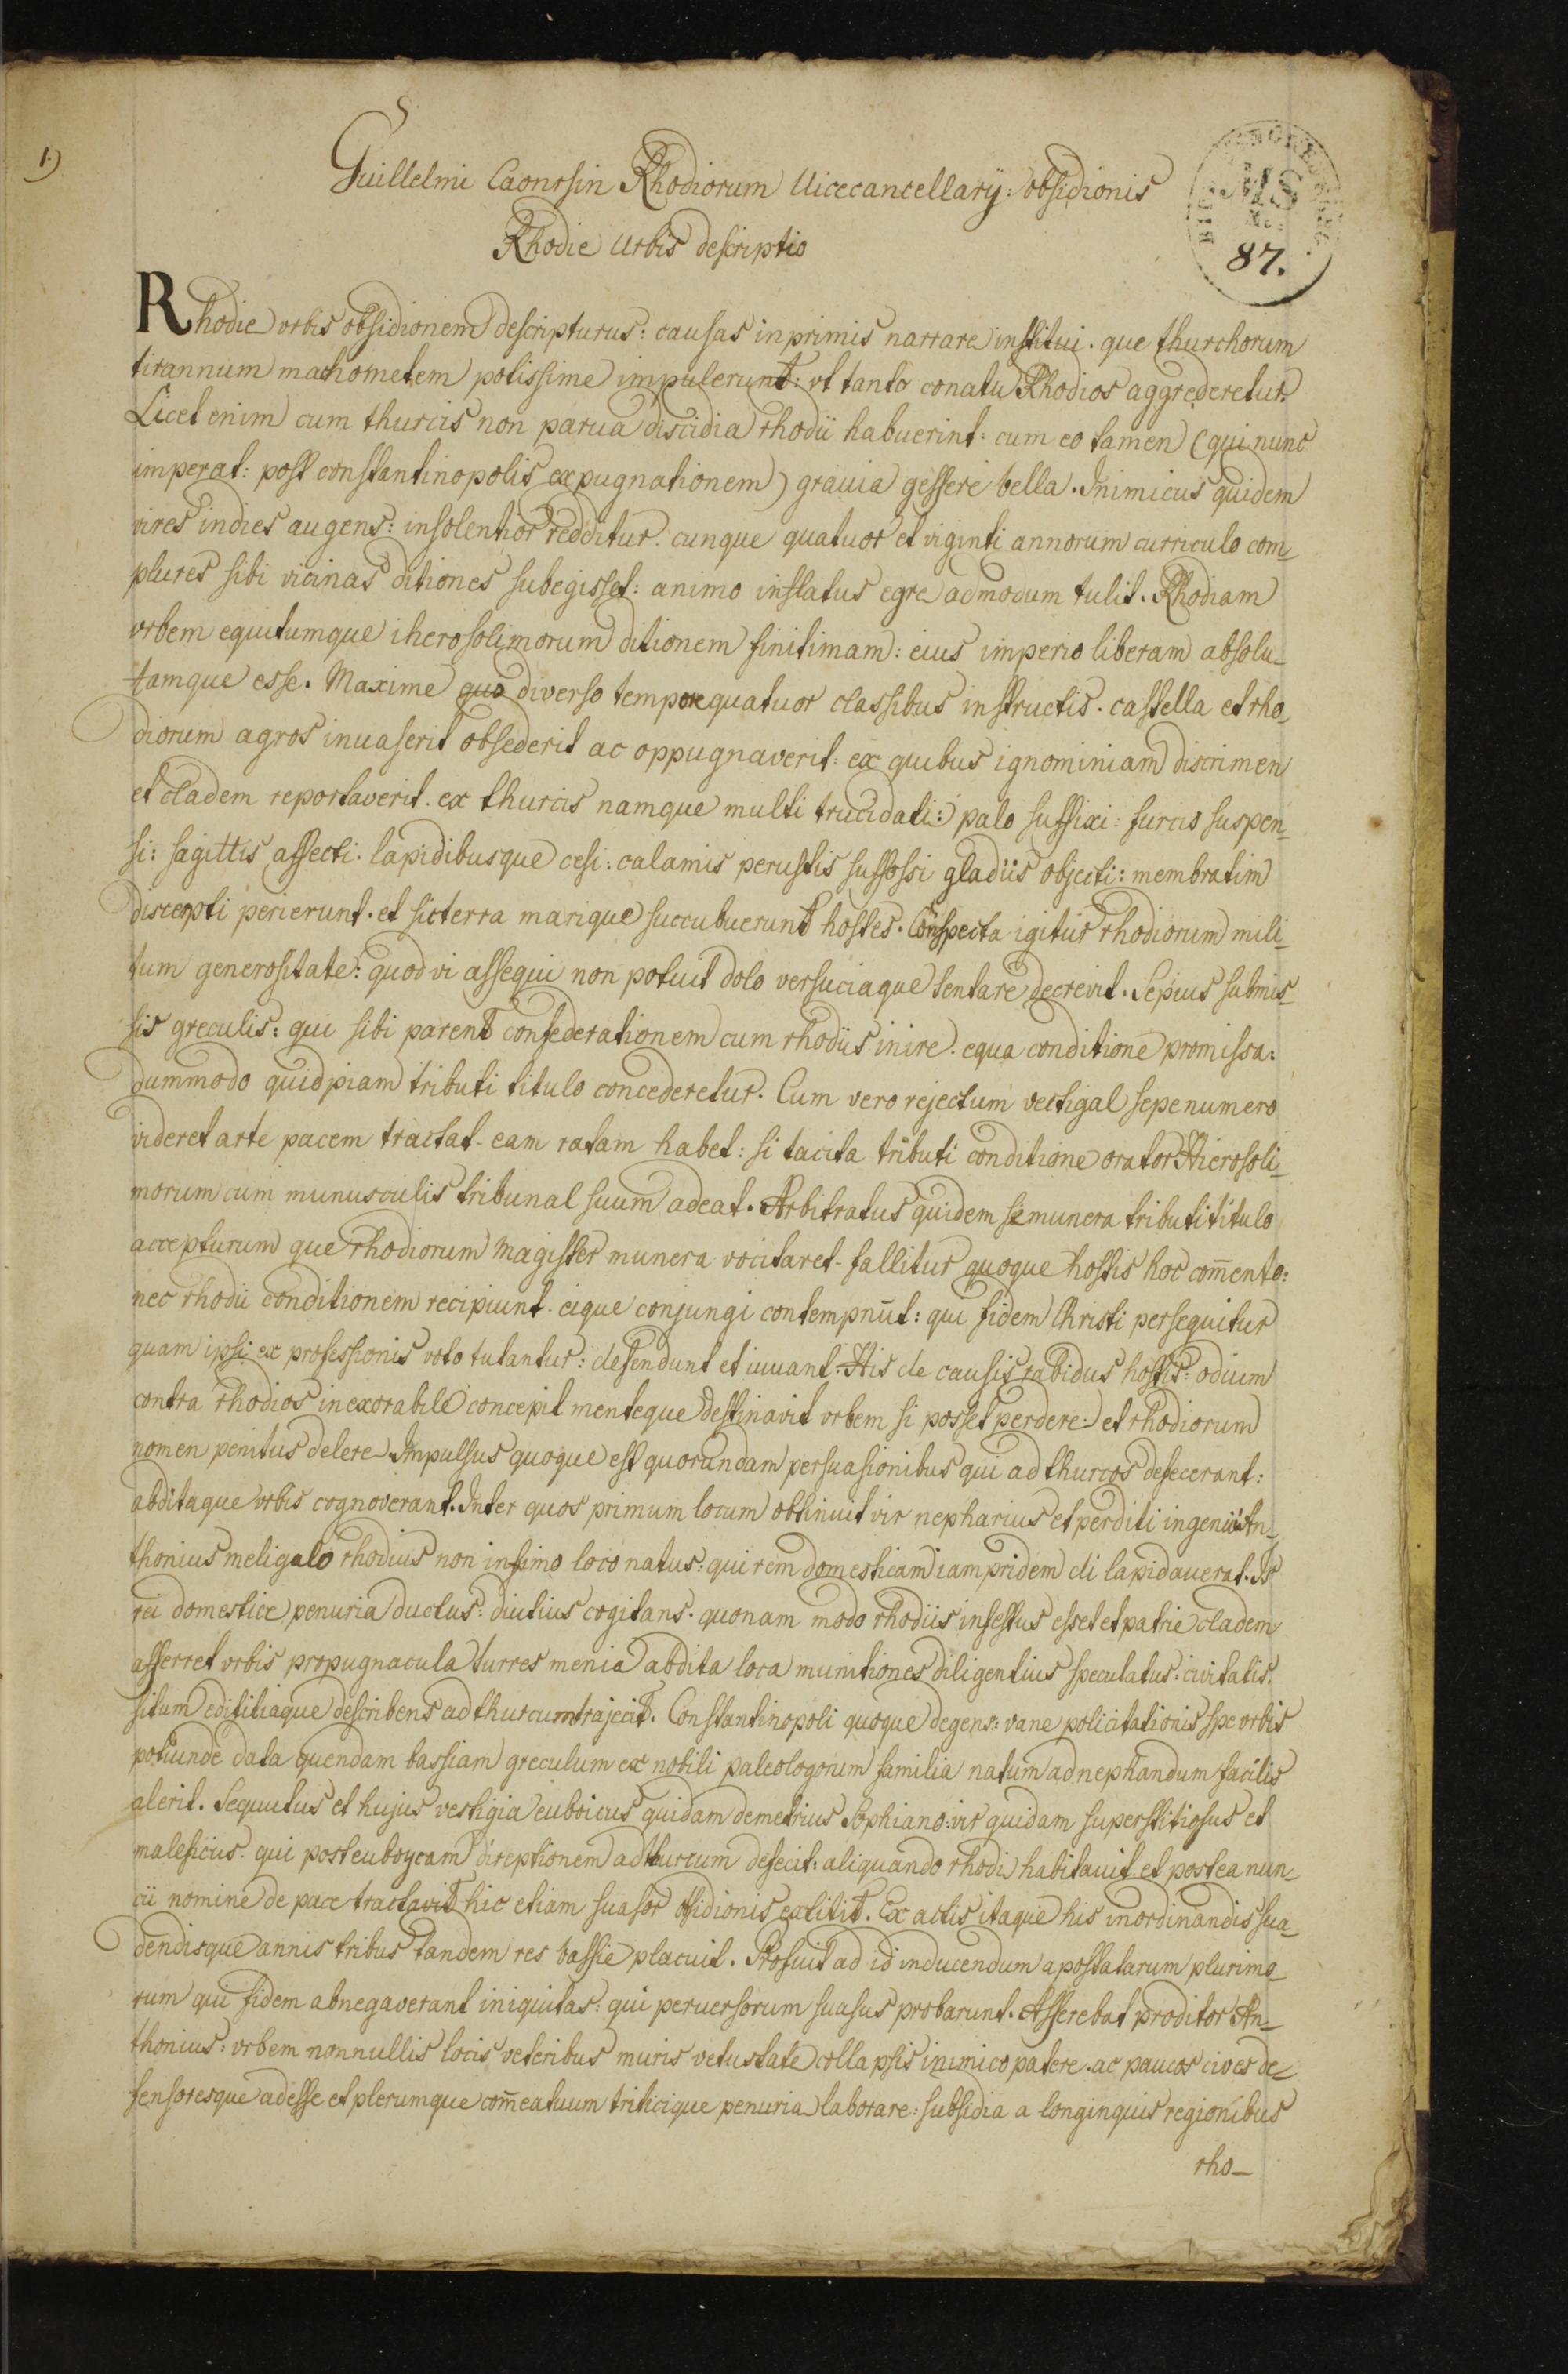 1)
Guillelmi Caonrsin Rhodiorum Uicecancellarÿ: obsidionis
Rhodie Urbis descriptio
MS
No:
87.
Rhodie vrbis obsidionem descripturus: causas inprimis narrare institui. que thurchorum
tirannum machometem potissime impulerunt: vt tanto conatu Rhodios aggrederetur.
Licet enim cum thurcis non parua discidia rhodii habuerint: cum eo tamen (qui nunc
imperat: post constantinopolis expugnationem) grauia gessere bella. Inimicus quidem
vires indies augens: insolentior redditur. cunque quatuor et viginti annorum curriculo com_
plures sibi vicinas ditiones subegisset: animo inflatus egre admodum tulit. Rhodiam
vrbem equitumque iherosolimorum ditionem finitimam: eius imperio liberam absolu_
tamque esse. Maxime quo diverso tempore quatuor classibus instructis. castella et rho_
diorum agros inuaserit obsederit ac oppugnaverit: ex quibus ignominiam discrimen
et cladem reportaverit. ex thurcis namque multi trucidati: palo suffixi: furcis suspen_
si: sagittis affecti. lapidibusque cesi: calamis perustis suffossi gladiis objecti: membratim
discerpti perierunt. et sicterra marique succubuerunt hostes. Conspecta igitur rhodiorum mili_
tum generositate: quod vi assequi non potuit dolo versuciaque tentare decrevit. Sepius submis_
sis greculis: qui sibi parent confederationem cum rhodiis inire. equa conditione promissa:
dummodo quidpiam tributi titulo concederetur. Cum vero rejectum vectigal sepenumero
videret arte pacem tractat. eam ratam habet: si tacita tributi conditione orator Hierosoli_
morum cum munusculis tribunal suum adeat. Arbitratus quidem se munera tributi titulo
accepturum que rhodiorum Magister munera vocitaret. fallitur quoque hostis hoc com̄ento:
nec rhodii conditionem recipiunt. eique conjungi contempnūt: qui fidem Christi persequitur
quam ipsi ex professionis voto tutantur: defendunt et iuuant. His de causis rabidus hostis: odium
contra rhodios inexorabile concepit menteque destinavit vrbem si posset perdere: et rhodiorum
nomen penitus delere. Impulsus quoque est quorundam persuasionibus qui ad thurcos defecerant:
abditaque vrbis cognoverant. Inter quos primum locum obtinuit vir nepharius et perditi ingenii An_
thonius meligalo rhodius non infimo loco natus: qui rem domesticam iampridem di lapidauerat. Is
rei domestice penuria ductus: diutius cogitans. quonam modo rhodiis infestus esset et patrie cladem
afferret vrbis propugnacula turres menia abdita loca munitiones diligentius speculatus: civitatis
situm edifitiaque describens ad thurcum trajecit. Constantinopoli quoque degens: vane policitationis spe vrbis
potiunde data quendam bassiam greculum ex nobili paleologorum familia natum ad nephandum facilis
alerit. Sequutus et hujus vestigia euboicus quidam demetrius Sophiano: vir quidam superstitiosus et
maleficus. qui post euboycam direptionem ad thurcum defecit: aliquando rhodi habitavit. et postea nun_
cii nomine de pace tractavit hic etiam suasor obsidionis extitit. Ex actis itaque his inordinandis sua_
dendisque annis tribus tandem res bassie placuit. Profuit ad id inducendum apostatarum plurimo_
rum qui fidem abnegaverant iniquitas: qui peruersorum suasus probarunt. Asserebat proditor An_
thonius: vrbem nonnullis locis veteribus muris vetustate collapsis inimico patere. ac paucos cives de_
fensoresque adesse et plerumque com̄eatuum triticique penuria laborare: subsidia a longinquis regionibus
rho_